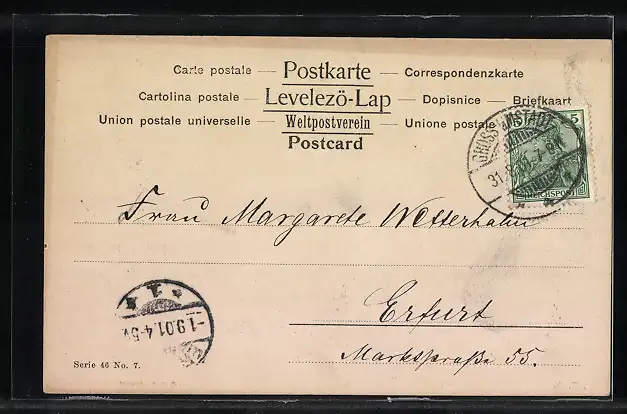 Carte postale — Postkarte — Correspondenzkarte
Cartolina postale — Levelezö-Lap — Dopisnice — Briefkaart
Union postale universelle — Weltpostverein — Unione postale
Postcard
5
31.8.01.7-8N.
Frau Margarete Westerhahn
Erfurt
Marktstraße 55.
1.9.01.4-5V.
1
Serie 46 No. 7.